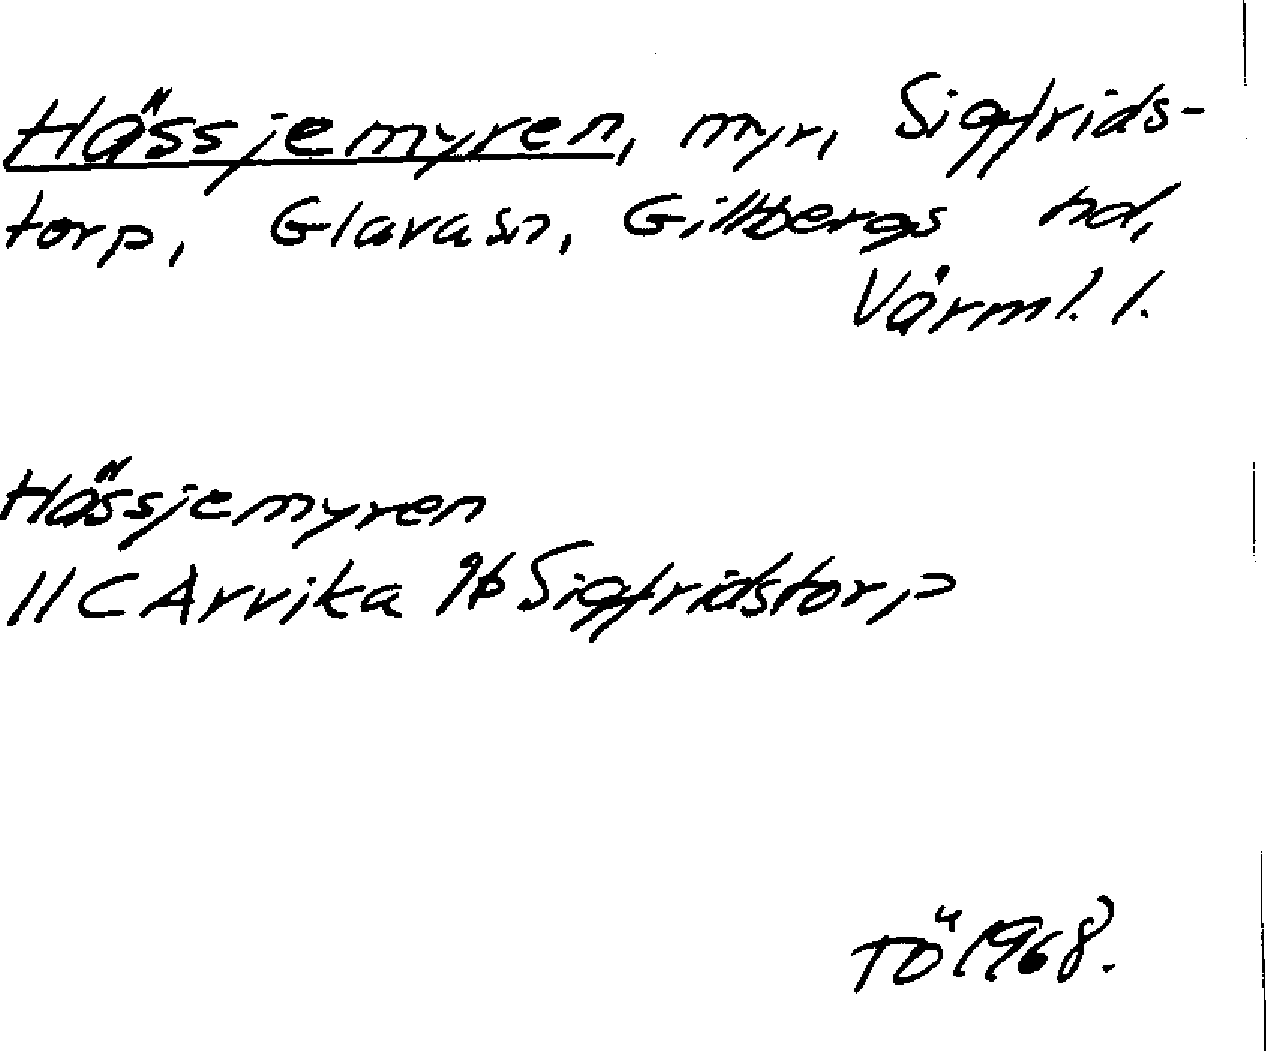 Hässjemyren, myr, Sigfrids-
torp, Glava sn, Gillbergs hd,
Värml. l.
Hässjemyren
11C Arvika 9b Sigfridstorp
TÖ 1968.